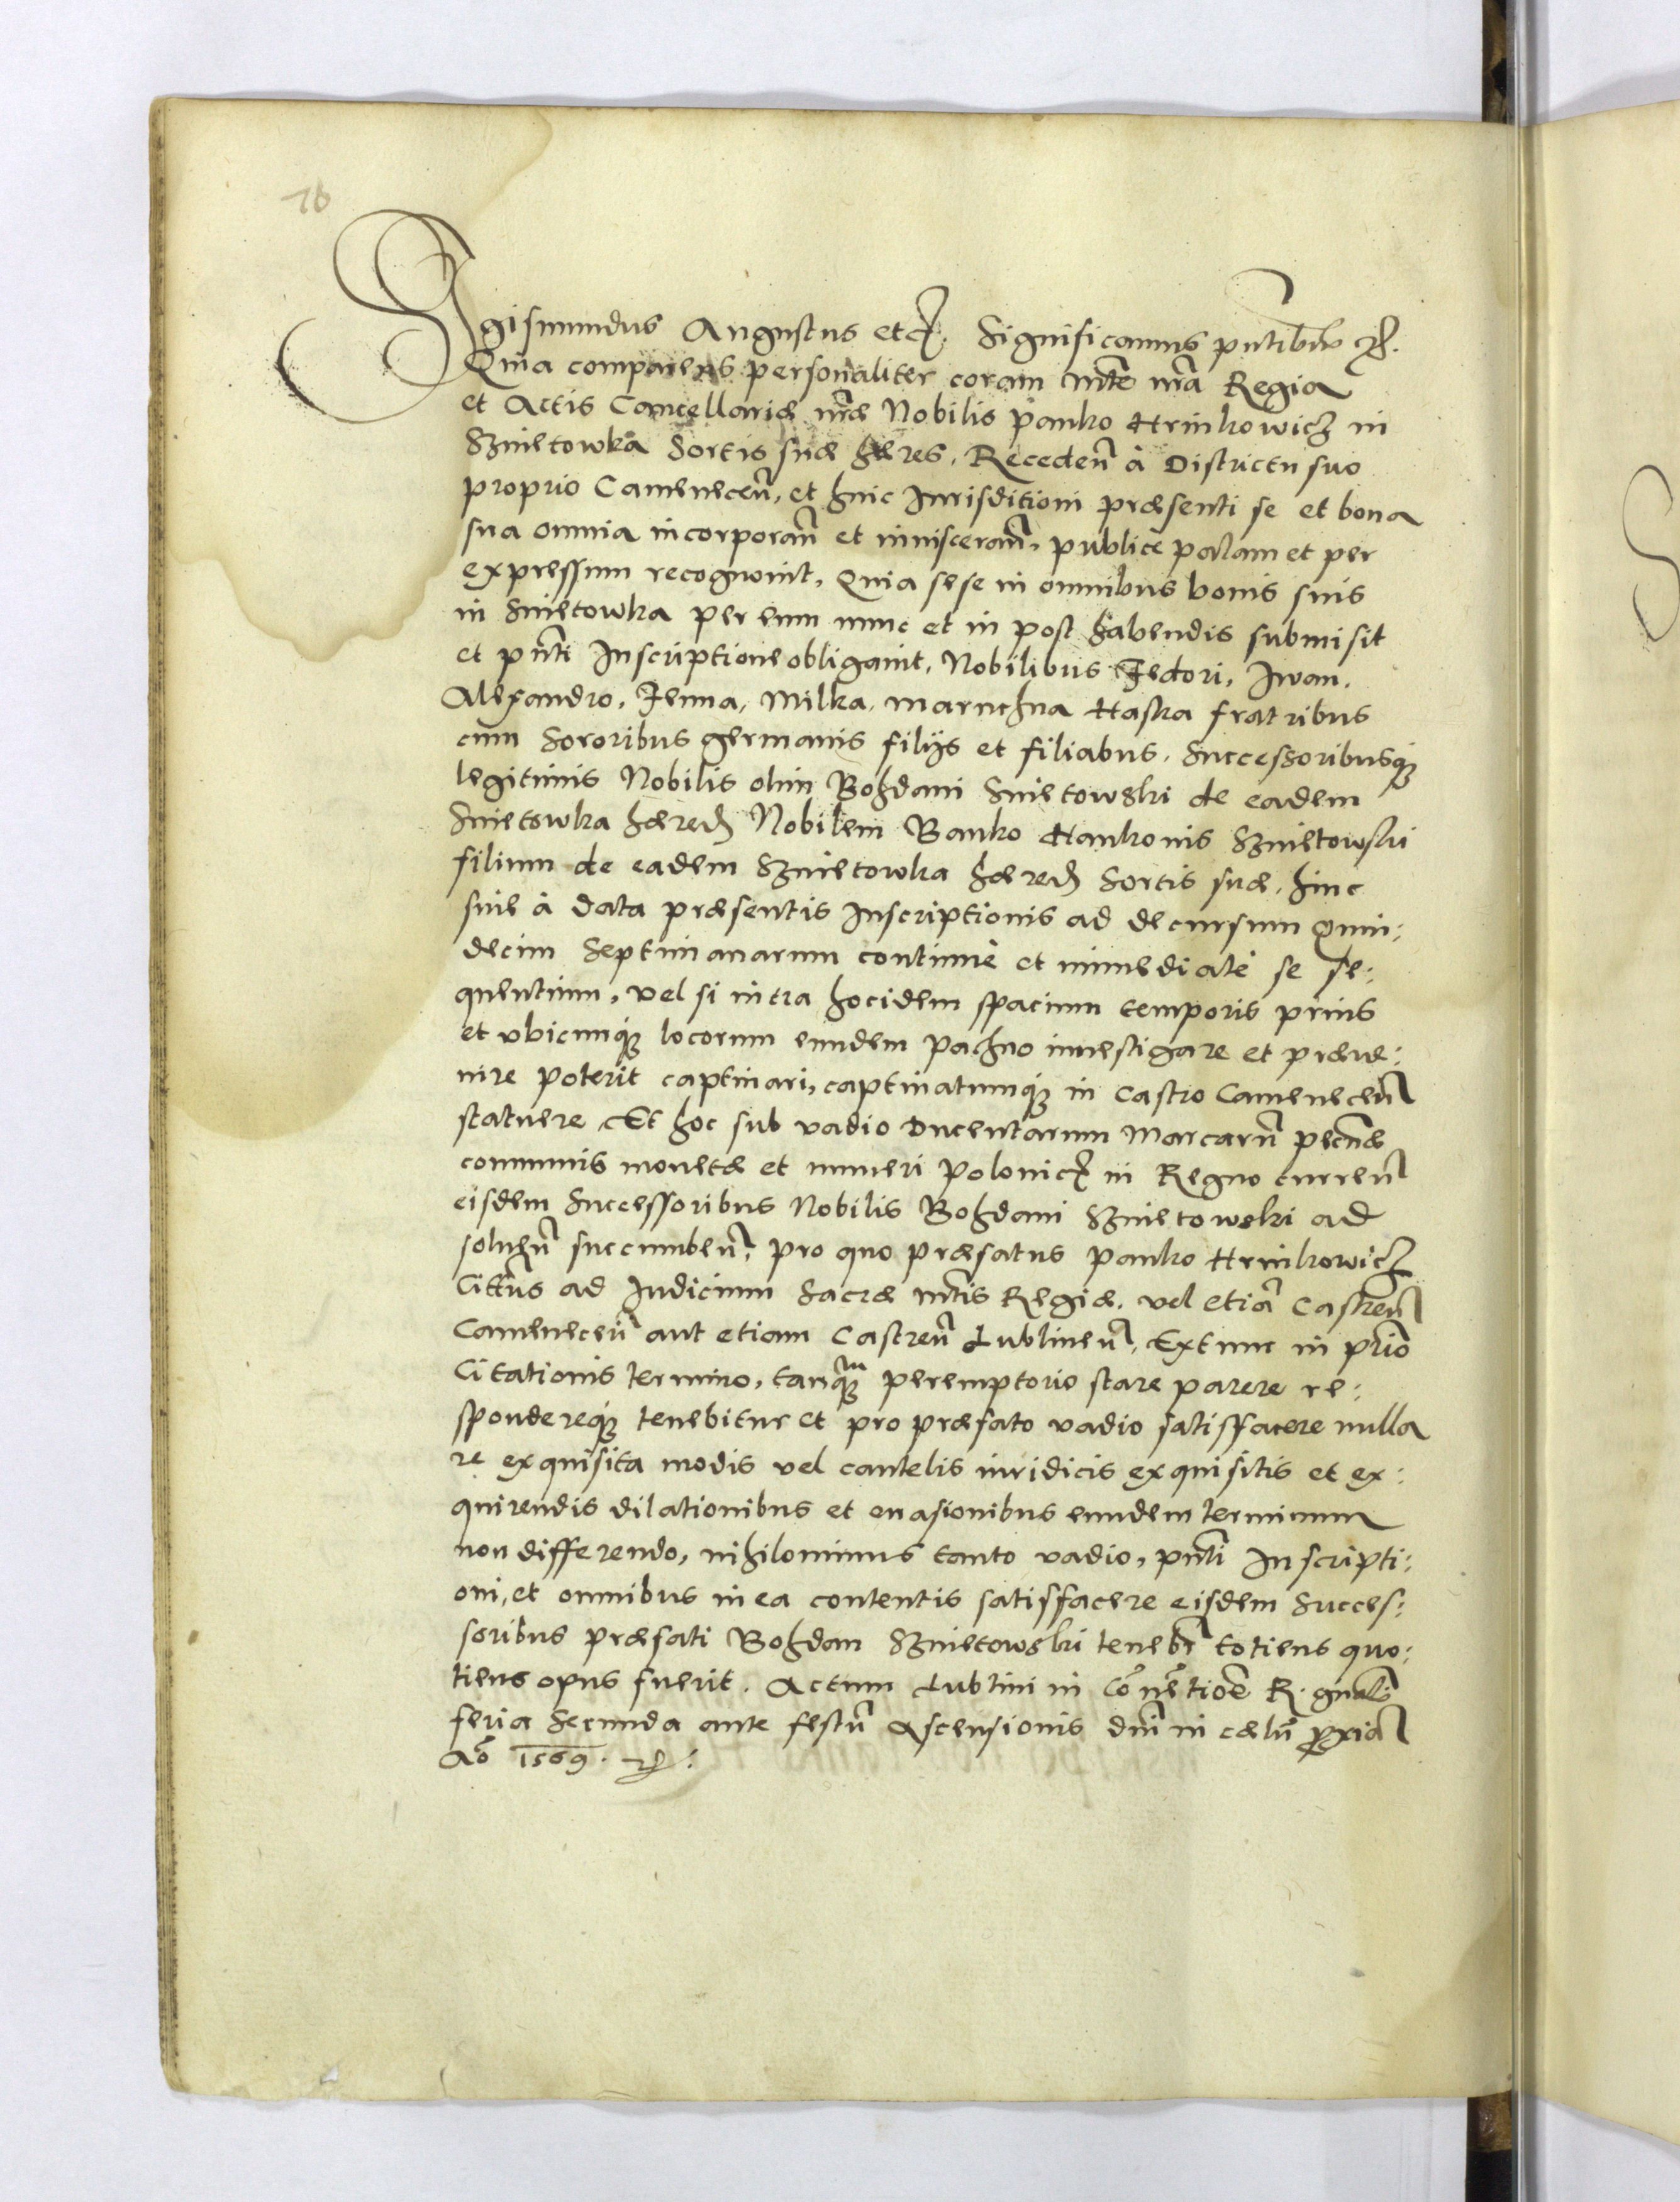 76
Sigismundus Augustus etc. Significamus pntibus etc.
Quia comparens personaliter coram Mte nra Regia
et Actis Cancellariæ nræ Nobilis Panko Hrinkowicz in
Sznietowka Sortis suæ hæres, Receden̄ à Districtu suo
proprio Camenecen̄, et huic Iurisditioni præsenti se et bona
sua omnia incorporan̄ et inuisceran̄, publicè palam et per
expressum recognouit, Quia sese in omnibus bonis suis
in Snietowka per eum nunc et in post habendis submisit
et pn̄ti Inscriptione obligauit, Nobilibus Fedori, Iwan,
Alexandro, Fenna, Milka, Maruchna Haska fratribus
cum Sororibus germanis filijs et filiabus, Successoribusq́ꝫ
legitimis Nobilis olim Bohdani Snietowski de eadem
Snietowka hæred Nobilem Banko Hankonis Sznietowski
filium de eadem Sznietowka hæred Sortis suæ, hinc
siue à data præsentis Inscriptionis ad decursum Quin:
decim Septimanarum continuè et immediatè se se:
quentium, vel si intra hocidem spacium temporis prius
et vbicunq́ꝫ locorum eundem Pachno inuestigare et præue:
nire poterit captiuari, captiuatumq́ꝫ in Castro Camenecen̄
statuere. Et hoc sub vadio Ducentarum Marcarū pecūæ
communis monetæ et numeri Polonic in Regno curren̄
eisdem Successoribus Nobilis Bohdani Sznietowski ad
soluen̄ succumben̄, pro quo præfatus Panko Hrinkowicz
Cittus ad Iudicium Sacræ Mtis Regiæ, vel etiā Castren̄
Camenecen̄ aut etiam Castren̄ Lublinen̄, Extunc in prīo
Citationis termino, tanq́ꝫm peremptorie stare parere re:
spondereq́ꝫ tenebitur et pro præfato vadio satisfacere nulla
re exquisita modis vel cautelis iuridicis exquisitis et ex:
quirendis dilationibus et euasionibus eundem terminum
non differendo, nihilominus tanto vadio, pn̄ti Inscripti:
oni, et omnibus in ea contentis satisfacere eisdem Succes:
soribus præfati Bohdan Sznietowski teneb̄r totiens quo:
tiens opus fuerit. Actum Lublini in Cōuētiōe R. gnali
feria Secunda ante festū Ascensionis Dn̄i in cælū proxiā
Aō 1569. etc: